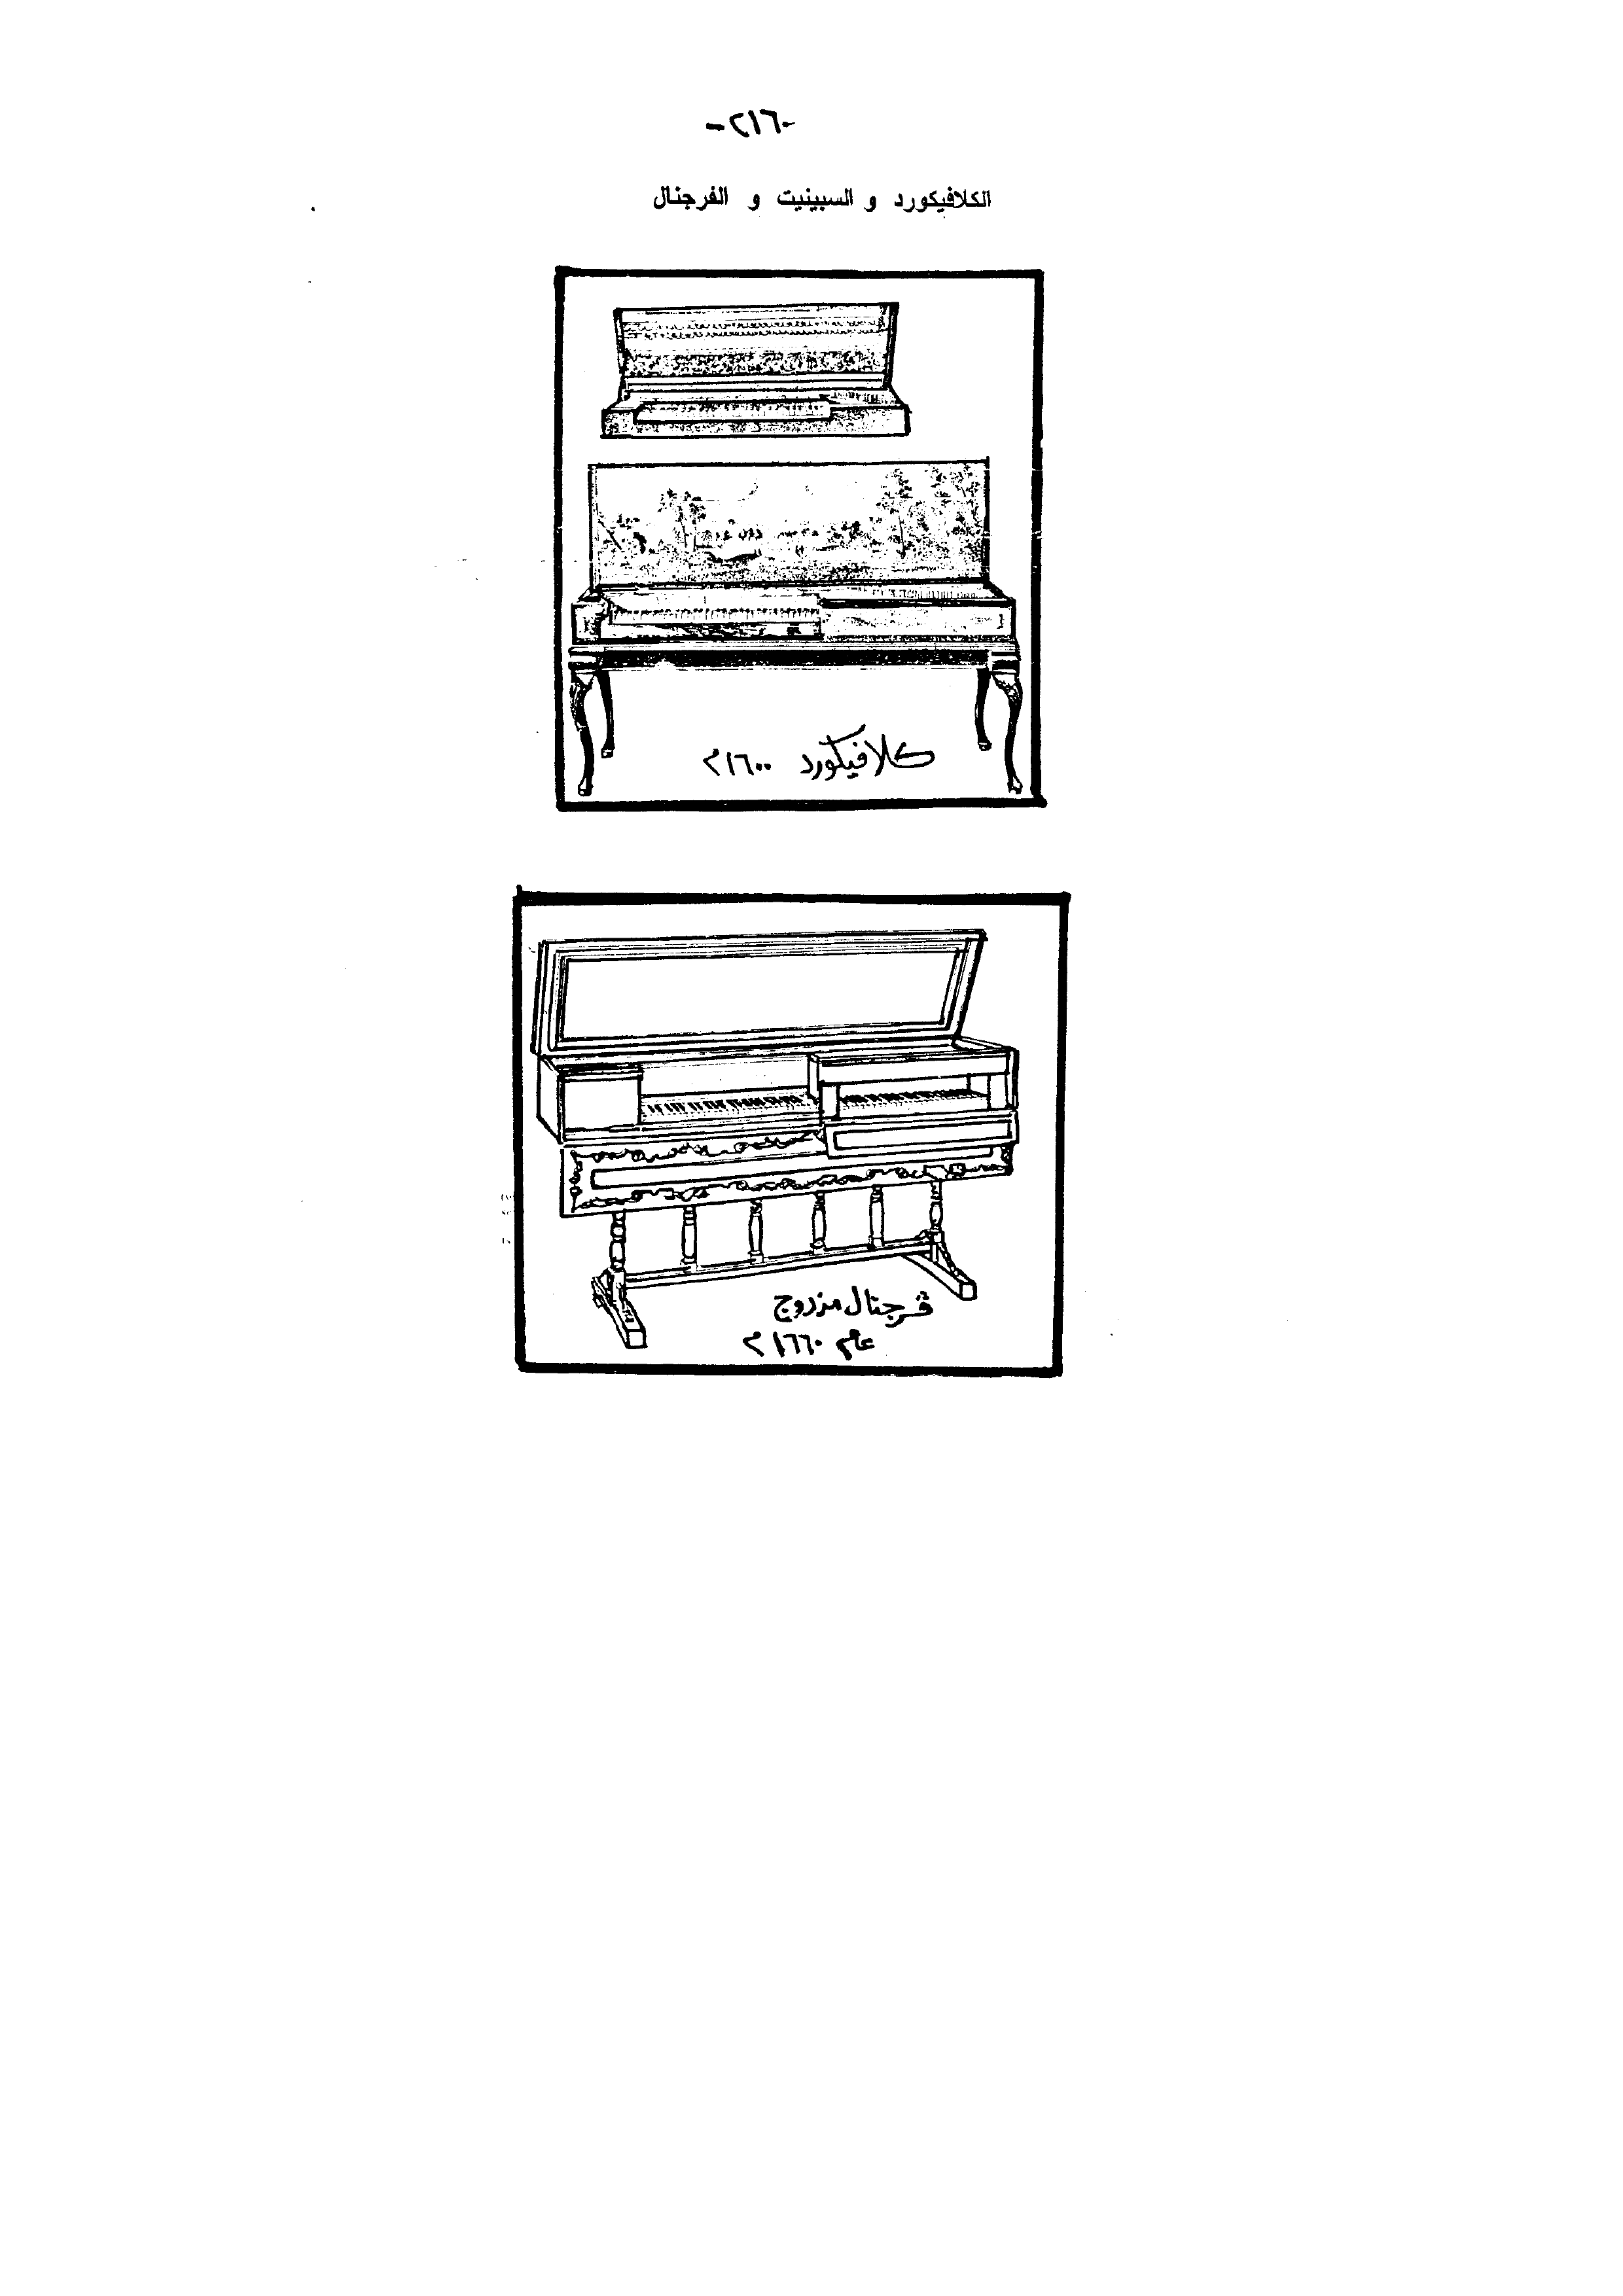 -٢١٦-
الكلافيكورد و السبينيت و الفرجنال
كلافيكورد ١٦٠٠م
ڤرجنال مزدوج
عام ١٦٦٠م